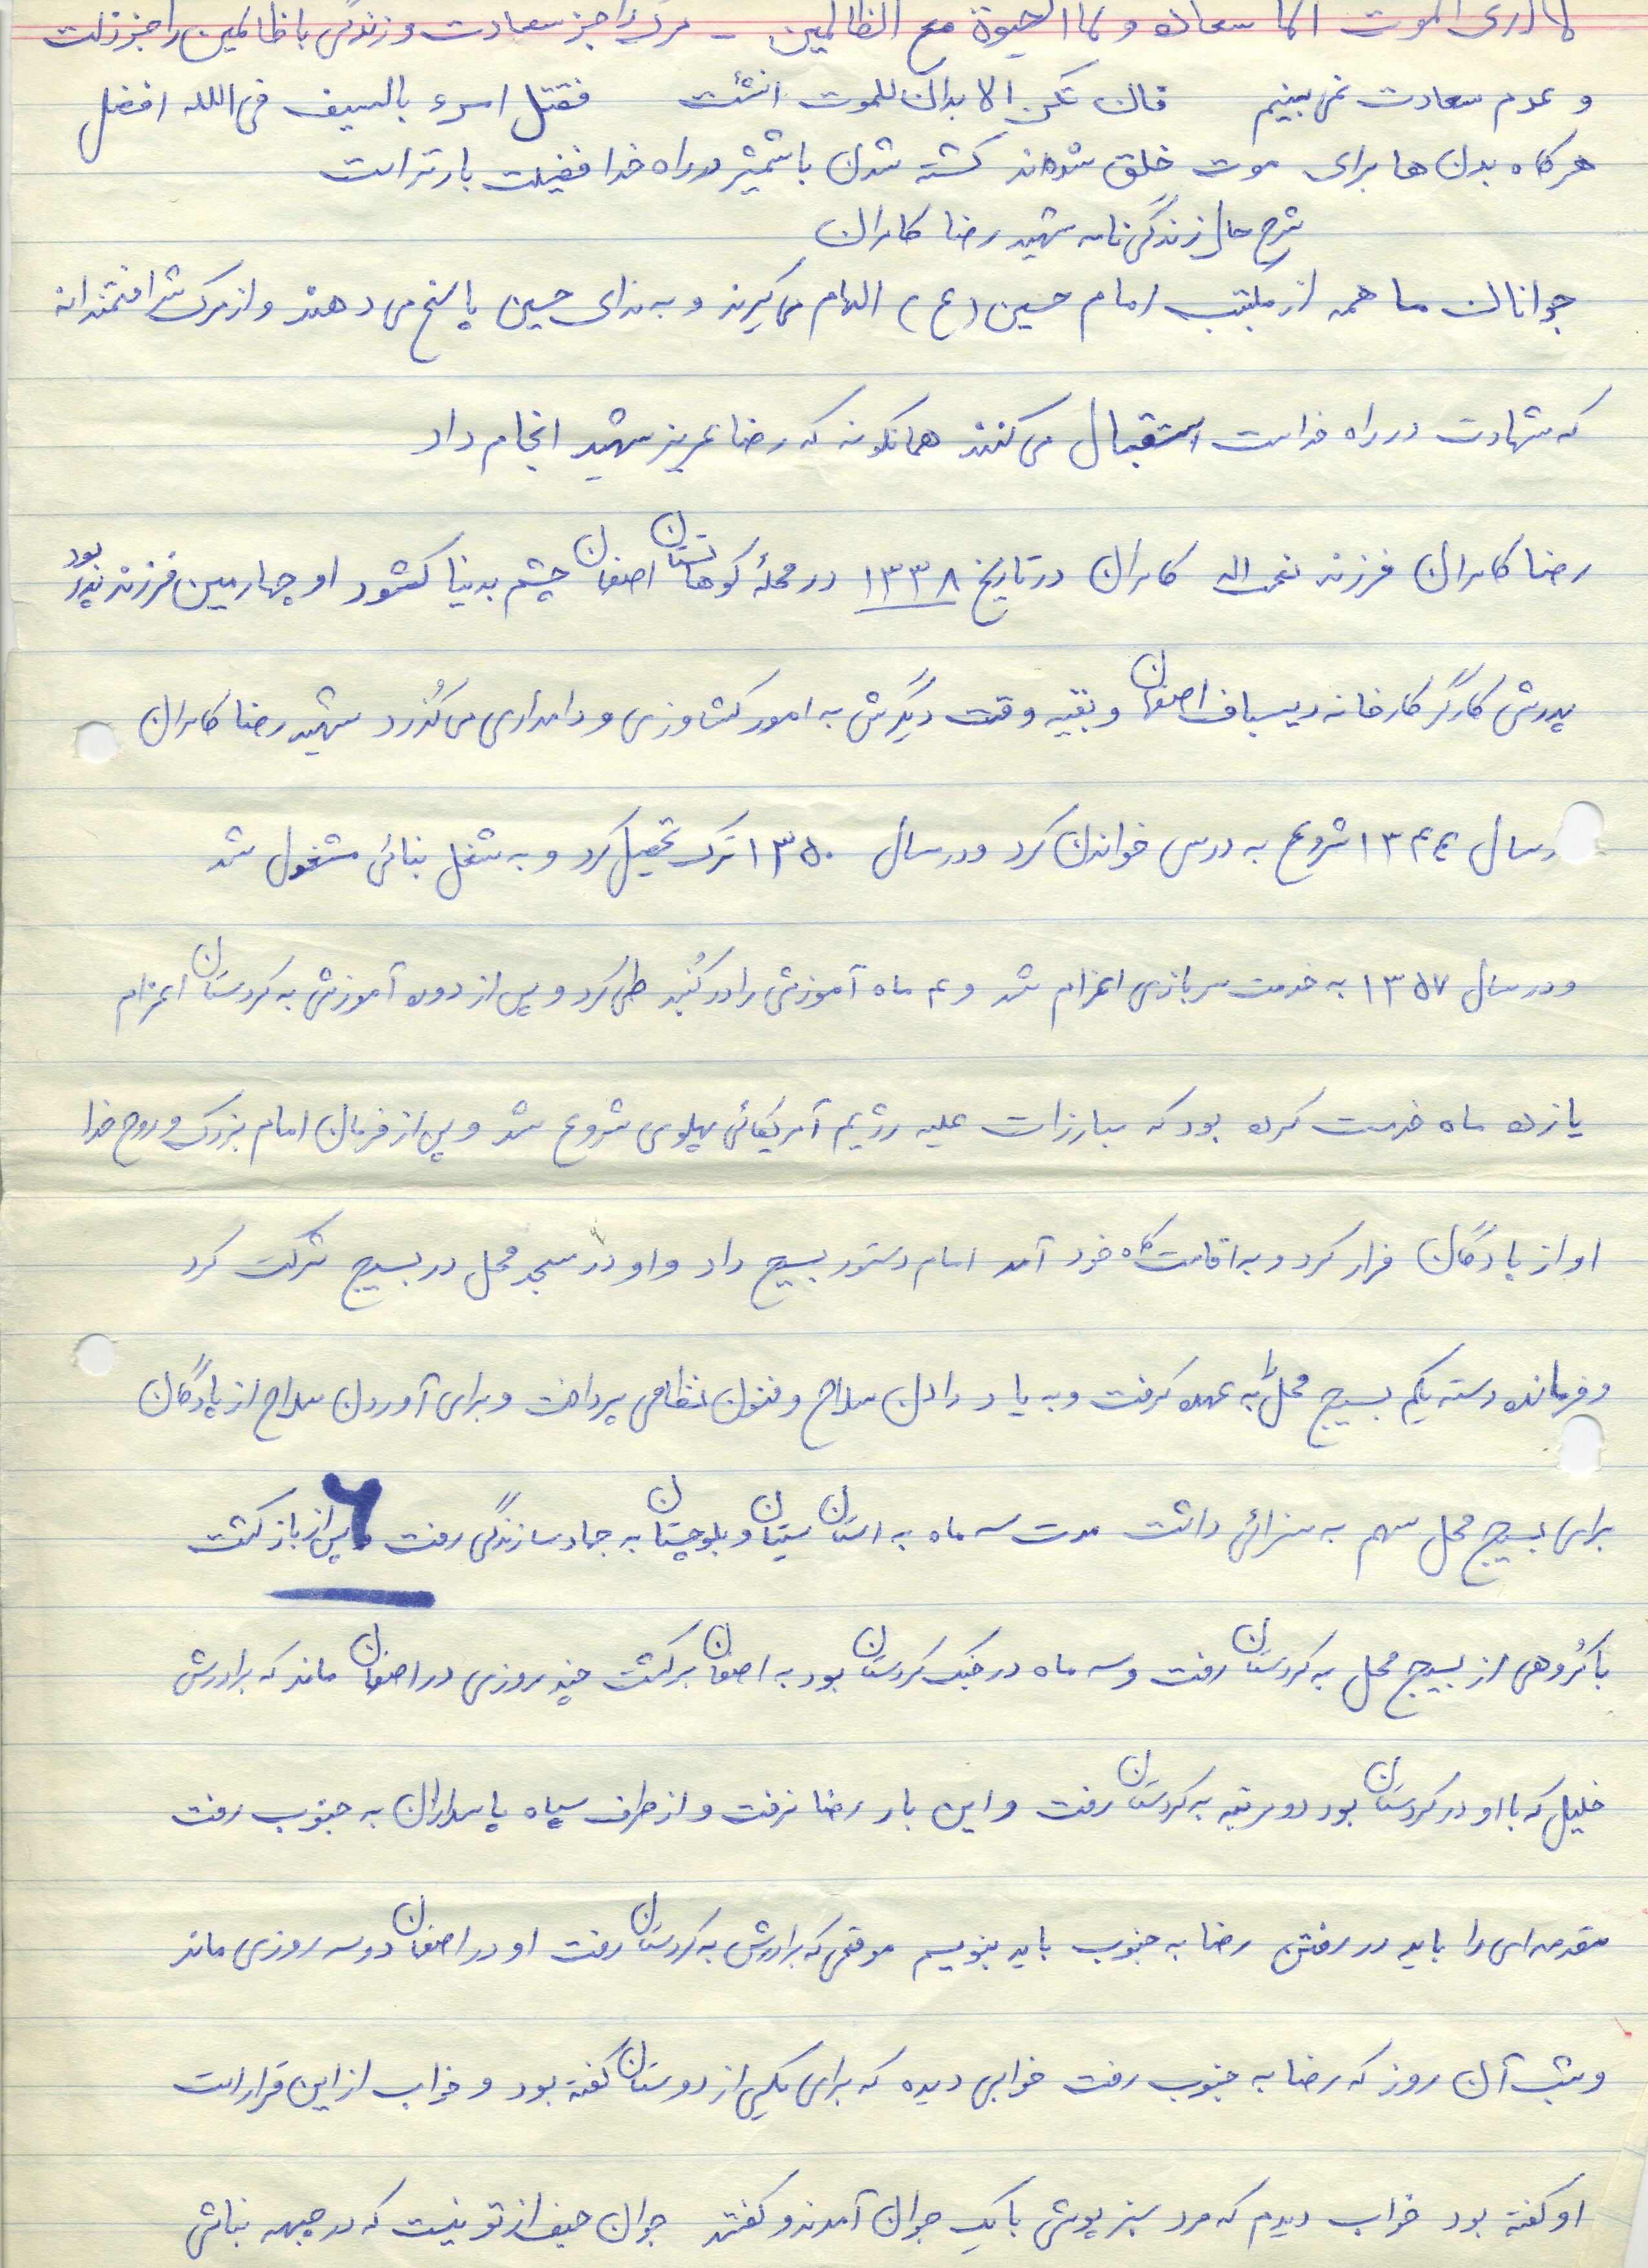 لا اری الموت الا سعاده و لا الحیوة مع الظالمین - مرگ را جز سعادت و زندگی با ظالمین را جز ذلت
و عدم سعادت نمی بینیم فان تکن الابدان للموت انشئت فقتل امرء بالسیف فی الله افضل
هرگاه بدن ها برای موت خلق شده‌اند کشته شدن با شمشیر در راه خدا فضیلت بارتر است
شرح حال زندگی نامه شهید رضا کامران
جوانان ما همه از مکتب امام حسین (ع) الهام می گیرند و به ندای حسین پاسخ می دهند و از مرگ شرافتمندانه
که شهادت در راه خداست استقبال می کنند همانگونه که رضا عزیز شهید انجام داد
رضا کامران فرزند نعمت اله کامران در تاریخ ۱۳۳۸ در محلهٔ کوهانستان اصفهان چشم بدنیا گشود او چهارمین فرزند پدر بود
پدرش کارگر کارخانه ریسباف اصفهان و بقیه وقت دیگرش به امور کشاورزی و دامداری می گذرد شهید رضا کامران
در سال ۱۳۴۴ شروع به درس خواندن کرد و در سال ۱۳۵۰ ترک تحصیل کرد و به شغل بنائی مشغول شد
و در سال ۱۳۵۷ به خدمت سربازی اعزام شد و ۴ ماه آموزشی را در طی کرد و پس از دوره آموزش به کردستان اعزام
یازده ماه خدمت کرده بود که مبارزات علیه رژیم آمریکائی پهلوی شروع شد و پس از فرمان امام بزرگ و روح خدا
او از پادگان فرار کرد و به اقامت گاه خود آمد امام دستور بسیج داد و او در مسجد محل در بسیج شرکت کرد
و فرمانده دسته یکم بسیج محل را به عهده گرفت و به یاد دادن سلاح و فنون نظامی پرداخت و برای آوردن سلاح از پادگان
برای بسیج محل سهم به سزائی داشت مدت سه ماه به استان سیستان و بلوچستان به جهاد سازندگی رفت و پس از بازگشت
با گروهی از بسیج محل به کردستان رفت و سه ماه در جنگ کردستان بود به اصفهان برگشت چند روزی در اصفهان ماند که برادرش
خلیل که با او در کردستان بود دو مرتبه به کردستان رفت و این بار رضا نرفت و از طرف سپاه پاسداران به جنوب رفت
مقدمه ای را باید در رفتن رضا به جنوب باید بنویسم موقعی که برادرش به کردستان رفت او در اصفهان دو سه روزی ماند
و شب آن روز که رضا به جنوب رفت خوابی دیده که برای یکی از دوستان گفته بود و خواب از این قرار است
او گفته بود خواب دیدم که مرد سبز پوشی با یک جوان آمدند و گفتند جوان حیف از تو نیست که در جبهه نباشی